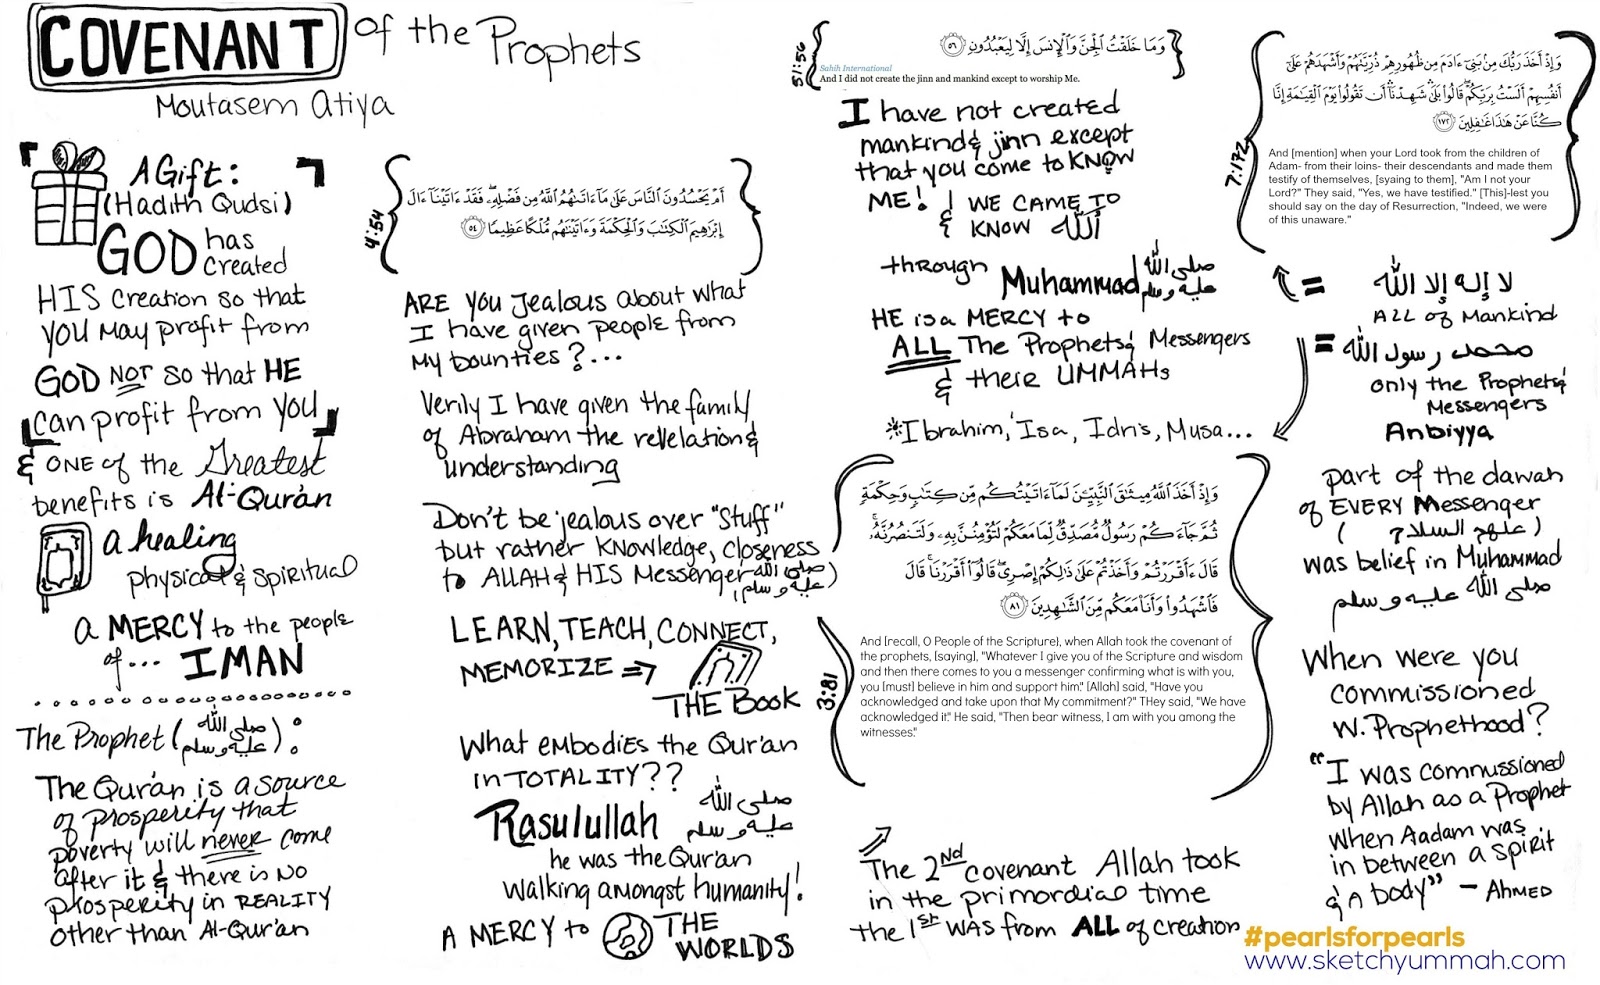 COVENANT of the Prophets
Moutasem Atiya
A Gift:
(Hadith Qudsi)
GOD has
created
HIS creation so that
YOU MAY profit from
GOD NOT so that HE
can profit from YOU
& ONE of the Greatest
benefits is Al-Qur'an
a healing
physical & spiritual
a MERCY to the people
of... IMAN
The Prophet (صلى الله عليه وسلم):
The Qur'an is a source
of prosperity that
poverty will never come
after it & there is NO
prosperity in REALITY
other than Al-Qur'an
4:54
أَمْ يَحْسُدُونَ ٱلنَّاسَ عَلَىٰ مَآ ءَاتَىٰهُمُ ٱللَّهُ مِن فَضْلِهِۦ ۖ فَقَدْ ءَاتَيْنَآ ءَالَ
إِبْرَٰهِيمَ ٱلْكِتَٰبَ وَٱلْحِكْمَةَ وَءَاتَيْنَٰهُم مُّلْكًا عَظِيمًا ٥٤
ARE YOU Jealous about what
I have given people from
My bounties?...
Verily I have given the family
of Abraham the revelation &
understanding
Don't be jealous over "Stuff"
but rather Knowledge, closeness
to ALLAH & HIS Messenger (صلى الله عليه وسلم)
LEARN, TEACH, CONNECT,
MEMORIZE ⇒
THE Book
What EMbodiEs the Qur'an
in TOTALITY??
Rasulullah صلى الله عليه وسلم
he was the Qur'an
Walking amongst humanity!
A MERCY to THE
WORLDS
51:56
وَمَا خَلَقْتُ ٱلْجِنَّ وَٱلْإِنسَ إِلَّا لِيَعْبُدُونِ ٥٦
Sahih International
And I did not create the jinn and mankind except to worship Me.
I have not created
mankind & jinn except
that you come to KNOW
ME! & WE CAME TO
KNOW ٱللَّه
through Muhammad صلى الله عليه وسلم
HE is a MERCY to
ALL The Prophets & Messengers
& their UMMAHs
*Ibrahim, 'Isa, Idris, Musa...
3:81
وَإِذْ أَخَذَ ٱللَّهُ مِيثَٰقَ ٱلنَّبِيِّـۧنَ لَمَآ ءَاتَيْتُكُم مِّن كِتَٰبٍ وَحِكْمَةٍ
ثُمَّ جَآءَكُمْ رَسُولٌ مُّصَدِّقٌ لِّمَا مَعَكُمْ لَتُؤْمِنُنَّ بِهِۦ وَلَتَنصُرُنَّهُۥ ۚ
قَالَ ءَأَقْرَرْتُمْ وَأَخَذْتُمْ عَلَىٰ ذَٰلِكُمْ إِصْرِى ۖ قَالُوٓا۟ أَقْرَرْنَا ۚ قَالَ
فَٱشْهَدُوا۟ وَأَنَا۠ مَعَكُم مِّنَ ٱلشَّٰهِدِينَ ٨١
And [recall, O People of the Scripture], when Allah took the covenant of
the prophets, [saying], "Whatever I give you of the Scripture and wisdom
and then there comes to you a messenger confirming what is with you,
you [must] believe in him and support him." [Allah] said, "Have you
acknowledged and take upon that My commitment?" THey said, "We have
acknowledged it." He said, "Then bear witness, I am with you among the
witnesses."
The 2nd covenant Allah took
in the primordial time
the 1st WAS from ALL of creation
7:172
وَإِذْ أَخَذَ رَبُّكَ مِنۢ بَنِىٓ ءَادَمَ مِن ظُهُورِهِمْ ذُرِّيَّتَهُمْ وَأَشْهَدَهُمْ عَلَىٰٓ
أَنفُسِهِمْ أَلَسْتُ بِرَبِّكُمْ ۖ قَالُوا۟ بَلَىٰ ۛ شَهِدْنَآ ۛ أَن تَقُولُوا۟ يَوْمَ ٱلْقِيَٰمَةِ إِنَّا
كُنَّا عَنْ هَٰذَا غَٰفِلِينَ ١٧٢
And [mention] when your Lord took from the children of
Adam- from their loins- their descendants and made them
testify of themselves, [syaing to them], "Am I not your
Lord?" They said, "Yes, we have testified." [This]-lest you
should say on the day of Resurrection, "Indeed, we were
of this unaware."
= لا إله إلا الله
ALL of Mankind
= محمد رسول الله
only the Prophets &
Messengers
Anbiyya
part of the dawah
of EVERY Messenger
(عليهم السلام)
was belief in Muhammad
صلى الله عليه وسلم
When were you
commissioned
W. Prophethood?
"I was commissioned
by Allah as a Prophet
when Aadam was
in between a spirit
& A body" - AHMED
#pearlsforpearls
www.sketchyummah.com